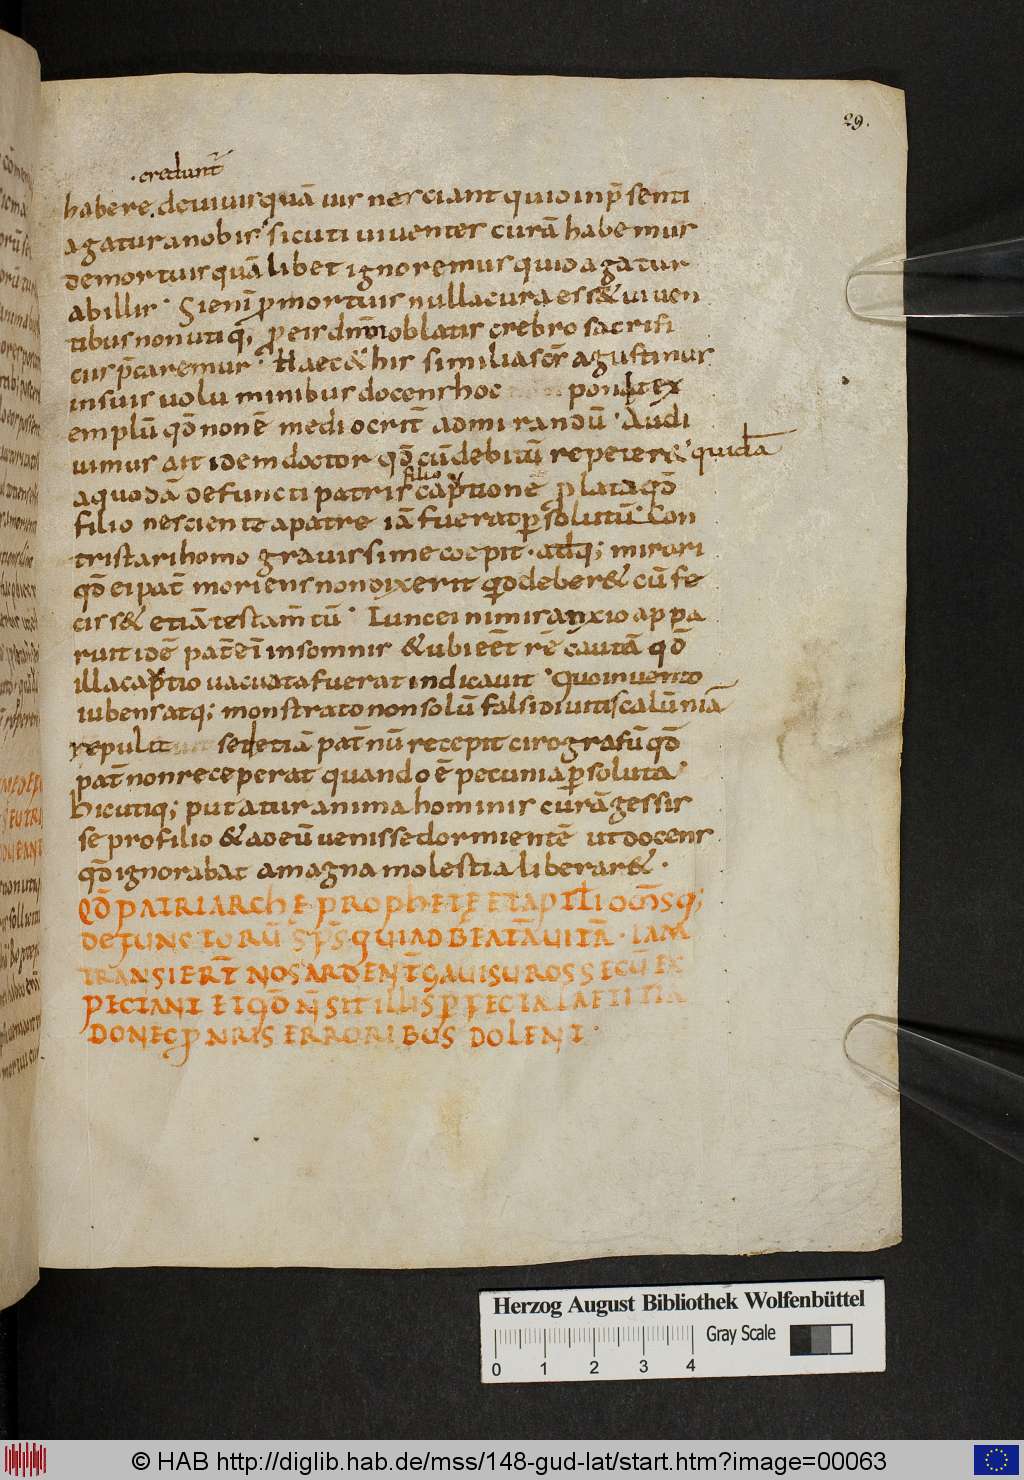 29.
·credunt᷑
habere. deuiuis quā uis nesciant quid inp̄senti
agatur anobis· sicuti uiuentes curā habemus
demortuis quā libet ignoremus quid agatur
abillis· Si eni᷑ p̱ mortuis nulla cura ess& uiuen
tibus non utiq; p̱ eis dn̄m oblatis crebro sacrifi
ciis p̄caremur· Haec & his similia scs̄ agustinus
insuis uolu minibus docens hoc ponit ex
emplū qd̄ non ē mediocrit᷑ admirandū· Audi
uimus ait idem doctor qd̄ cū debitū repeter& quidā
filio
aquodā defuncti patris cap̱tione p̱lata qd̄
filio nesciente apatre iā fuerat p̱solutū· Con
tristari homo grauissime coepit· atq; mirari
qd̄ ei pat᷑ moriens non dixerit quod deber& cū fe
ciss& etiā testam̄tū· Tunc ei nimis anxio appa
ruit idē pat᷑ ei᷑ insomnis & ubi eēt rē cautā qd̄
illa cap̱tio uacuata fuerat indicauit· Quo inuento
iubens atq; monstrato non solū falsi diuitis calūniā
repulit sed etiā pat᷑nū recepit cirografū qd̄
pat᷑ non receperat quando ē pecunia p̱soluta·
hic utiq; putatur anima hominis curā gessis
se pro filio & ad eū uenisse dormientē ut docens
qd̄ ignorabat amagna molestia liberar&·
QD̄ PATRIARCHE PROPHETE ET APT̄LI OM̄SQ;
DEFUNCTORŪ SP̄S QUI AD BEATĀ UITĀ· IAM
TRANSIERT̄ NOS ARDENT᷑ GAUISUROS SECŪ EX
PECTANT ET QD̄ N̄ SIT ILLIS P̱FECTA LAETITIA
DONEC P̱ NRIS ERRORIBUS DOLENT·
Herzog August Bibliothek Wolfenbüttel
Gray Scale
0 1 2 3 4
© HAB http://diglib.hab.de/mss/148-gud-lat/start.htm?image=00063